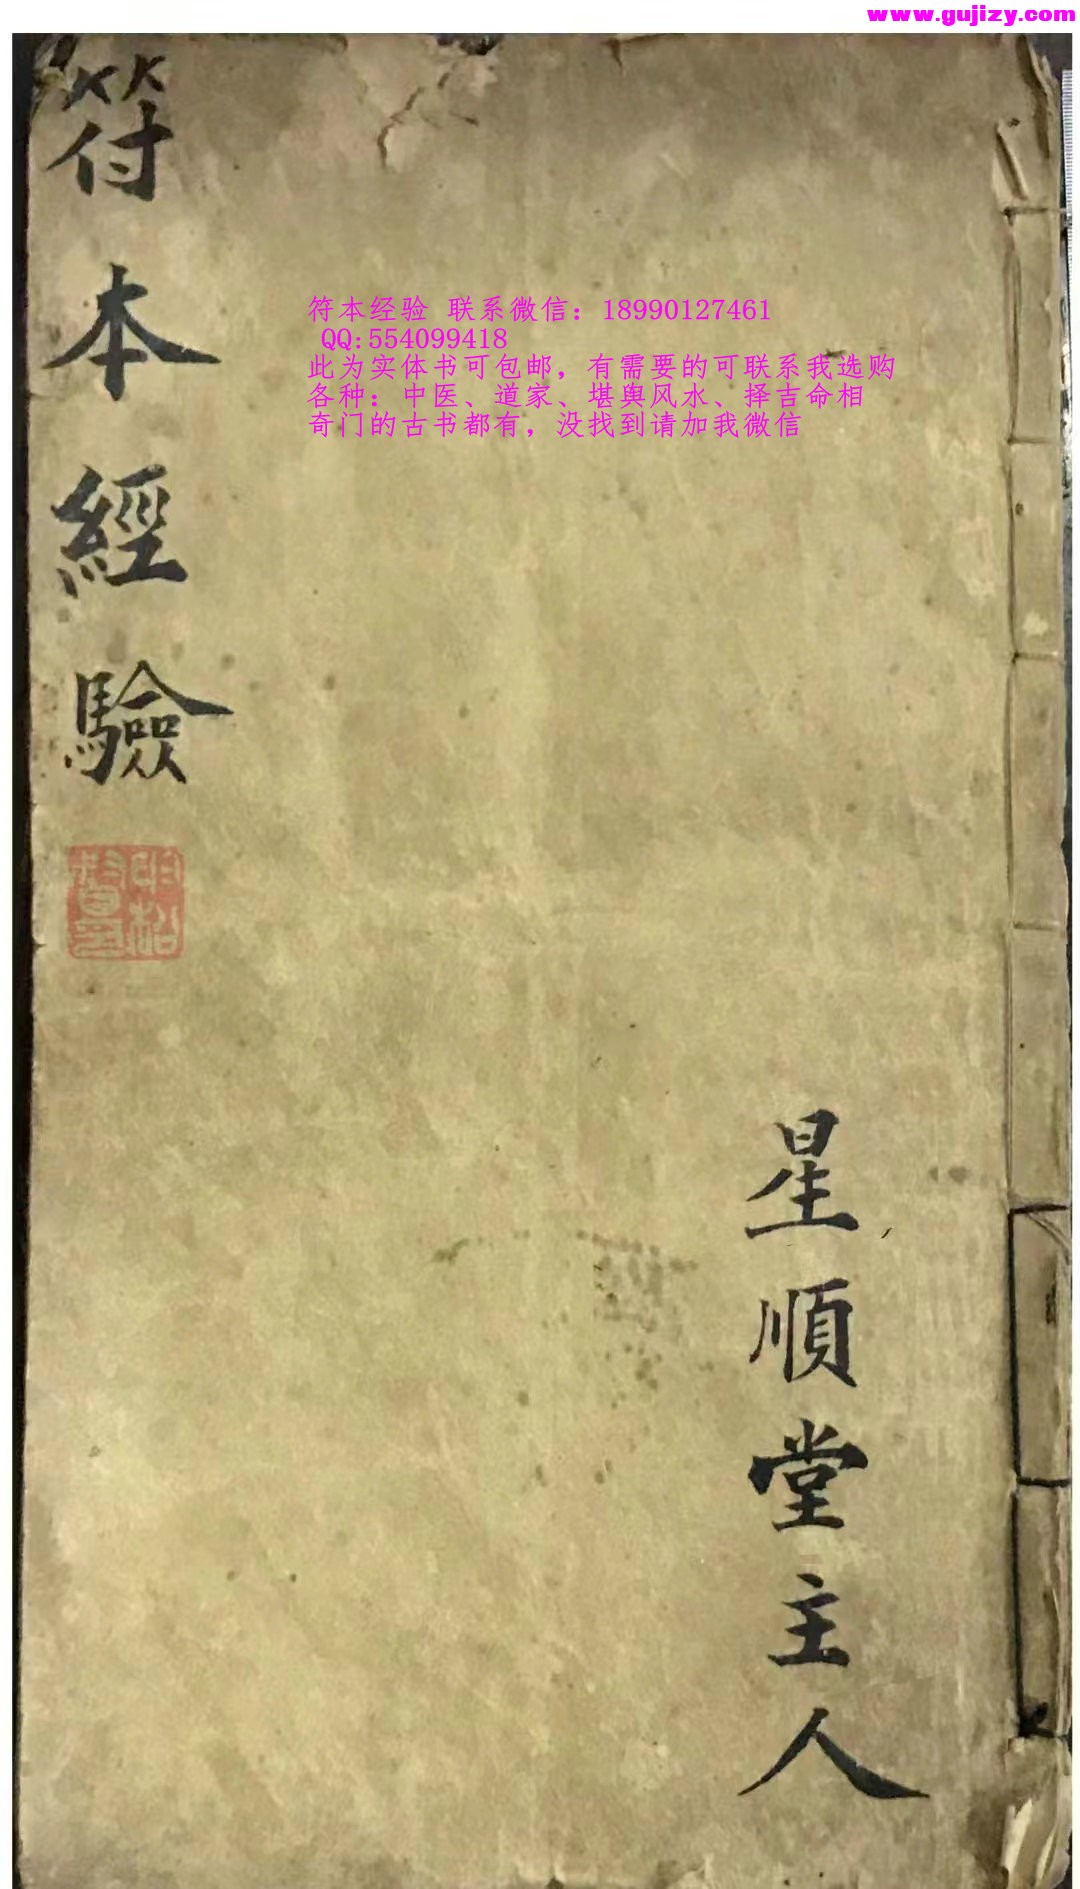 www.gujizy.com
符本經驗
符本经验 联系微信：18990127461
QQ:554099418
此为实体书可包邮，有需要的可联系我选购
各种：中医、道家、堪舆风水、择吉命相
奇门的古书都有，没找到请加我微信
星順堂主人